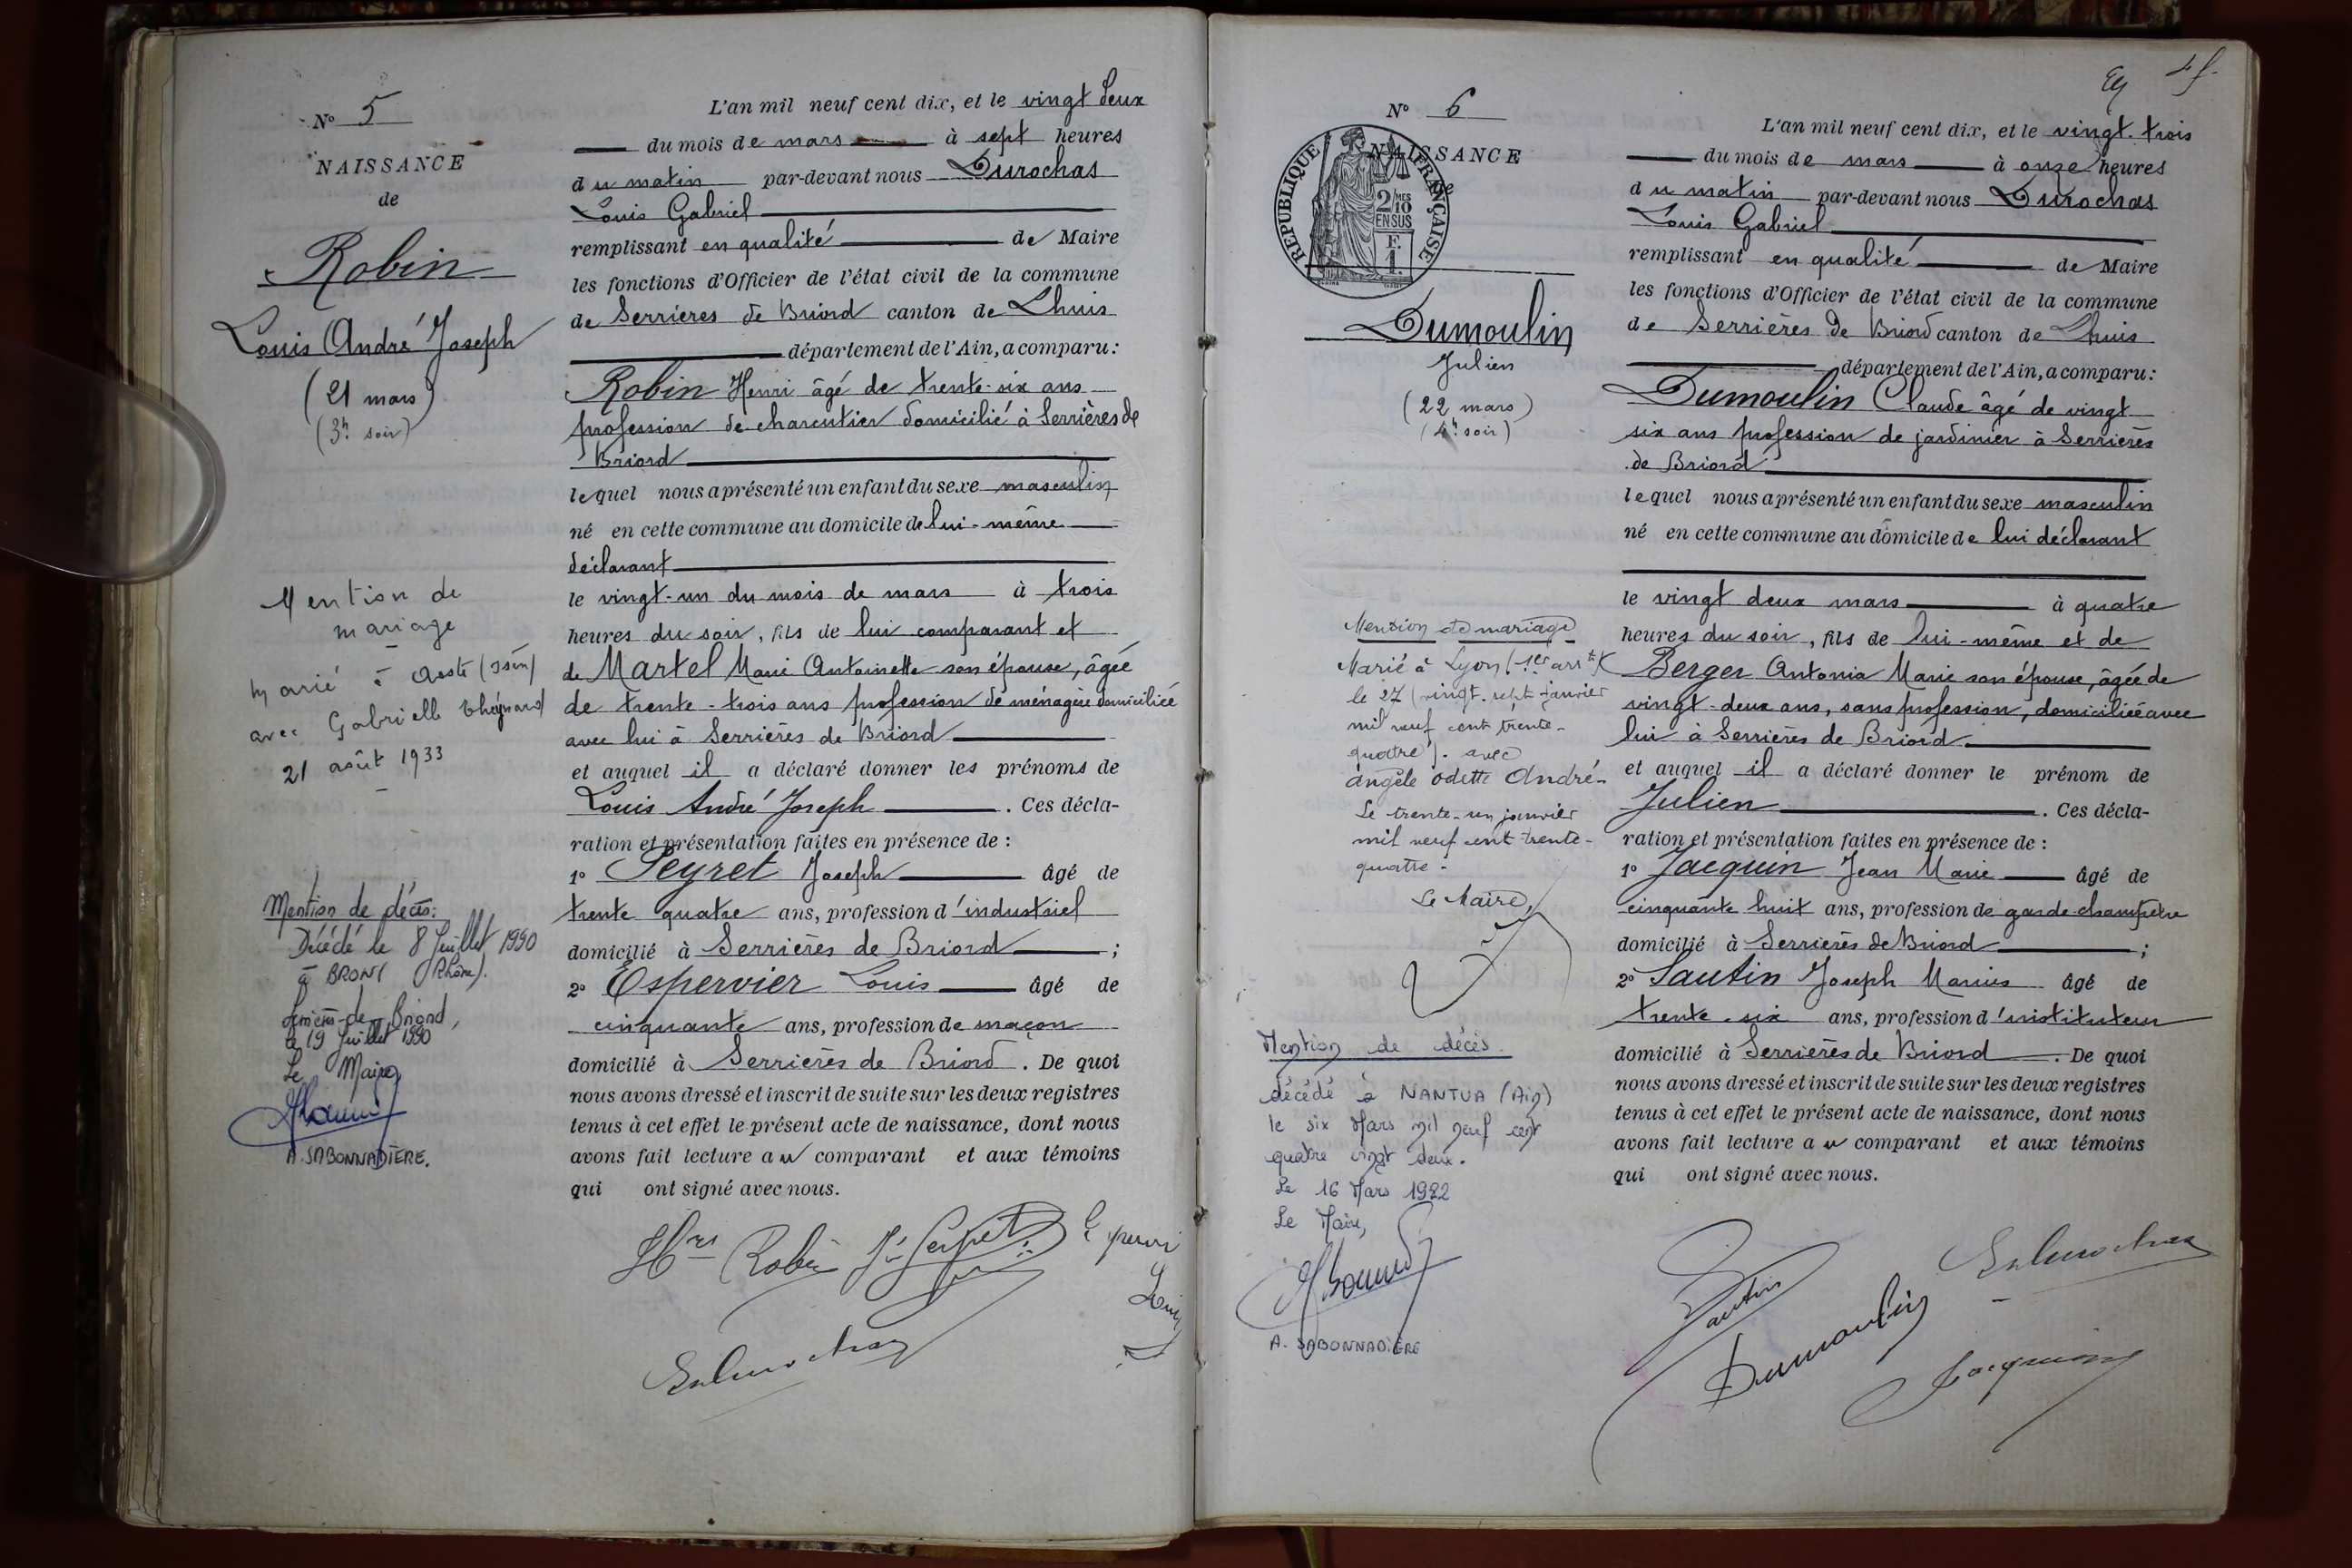 N° 5
NAISSANCE
de
Robin
Louis André Joseph
(21 mars)
(3h. soir)
Mention de
mariage
Marié à Aoste (Isère)
avec Gabrielle Théynard
21 août 1933
Mention de décès:
Décédé le 8 Juillet 1990
à BRON (Rhône).
Serrières-de-Briord,
le 19 Juillet 1990
Le Maire
A. SABONNADIÈRE.
L'an mil neuf cent dix, et le vingt deux
du mois de mars à sept heures
du matin par-devant nous Durochas
Louis Gabriel
remplissant en qualité de Maire
les fonctions d'Officier de l'état civil de la commune
de Serrières de Briord canton de Lhuis
département de l'Ain, a comparu:
Robin Henri âgé de trente-six ans
profession de charcutier domicilié à Serrières de
Briord
lequel nous a présenté un enfant du sexe masculin
né en cette commune au domicile de lui-même
déclarant
le vingt-un du mois de mars à trois
heures du soir, fils de lui comparant et
de Martel Marie Antoinette son épouse, âgée
de trente-trois ans profession de ménagère domiciliée
avec lui à Serrières de Briord
et auquel il a déclaré donner les prénoms de
Louis André Joseph. Ces décla-
ration et présentation faites en présence de :
1° Peyret Joseph âgé de
trente quatre ans, profession d'industriel
domicilié à Serrières de Briord ;
2° Espervier Louis âgé de
cinquante ans, profession de maçon
domicilié à Serrières de Briord. De quoi
nous avons dressé et inscrit de suite sur les deux registres
tenus à cet effet le présent acte de naissance, dont nous
avons fait lecture au comparant et aux témoins
qui ont signé avec nous.
Hri Robin Jh Peyret
Louis
N° 6
NAISSANCE
de
REPUBLIQUE FRANÇAISE
2/10 MES
EN SUS
F.
1.
Dumoulin
Julien
(22 mars)
(4h. soir)
Mention de mariage
Marié à Lyon (1er arrt)
le 27 (vingt-sept janvier
mil neuf cent trente-
quatre). avec
Angèle Odette André.
Le trente-un janvier
mil neuf cent trente-
quatre.
Le Maire,
Mention de décès.
décédé à NANTUA (Ain)
le six Mars mil neuf cent
quatre vingt deux.
Le 16 Mars 1982
Le Maire,
A. SABONNADIÈRE
L'an mil neuf cent dix, et le vingt-trois
du mois de mars à onze heures
du matin par-devant nous Durochas
Louis Gabriel
remplissant en qualité de Maire
les fonctions d'Officier de l'état civil de la commune
de Serrières de Briord canton de Lhuis
département de l'Ain, a comparu:
Dumoulin Claude âgé de vingt
six ans profession de jardinier à Serrières
de Briord
lequel nous a présenté un enfant du sexe masculin
né en cette commune au domicile de lui déclarant
le vingt deux mars à quatre
heures du soir, fils de lui-même et de
Berger Antonia Marie son épouse, âgée de
vingt-deux ans, sans profession, domiciliée avec
lui à Serrières de Briord
et auquel il a déclaré donner le prénom de
Julien. Ces décla-
ration et présentation faites en présence de :
1° Jacquin Jean Marie âgé de
cinquante huit ans, profession de garde-champêtre
domicilié à Serrières de Briord ;
2° Sautin Joseph Marius âgé de
trente-six ans, profession d'instituteur
domicilié à Serrières de Briord. De quoi
nous avons dressé et inscrit de suite sur les deux registres
tenus à cet effet le présent acte de naissance, dont nous
avons fait lecture au comparant et aux témoins
qui ont signé avec nous.
Sautin
Dumoulin
Jacquin